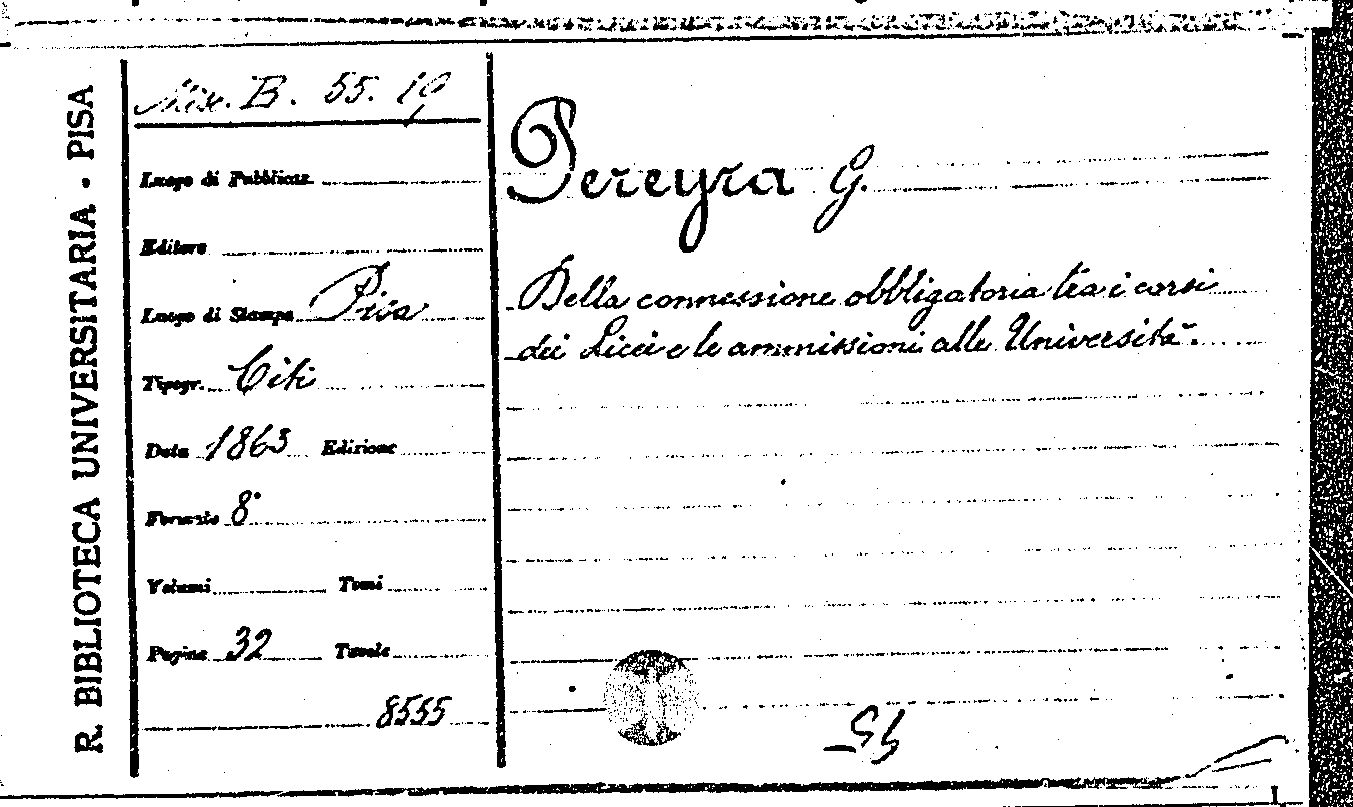 R. BIBLIOTECA UNIVERSITARIA - PISA
Misc. B. 55. 19
Luogo di Pubblicaz.
Editore
Luogo di Stampa Pisa
Tipogr. Citi
Data 1863 Edizione
Formato 8°
Volumi Tomi
Pagine 32 Tavole
8555
Pereyra G.
Della connessione obbligatoria tra i corsi
dei Licei e le ammissioni alle Università.